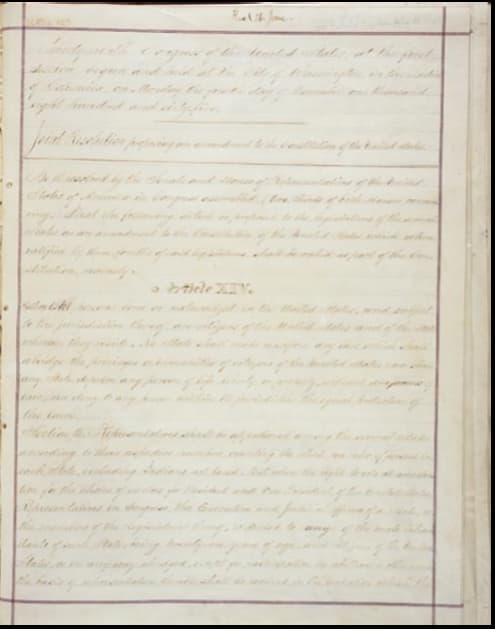 Congress of the United States, at the first
Session, begun and held at the City of Washington, in the
of Columbia, on Monday the day of one thousand
eight hundred and sixty-five.
Joint Resolution proposing an amendment to the Constitution of the United States.
Be it resolved by the Senate and House of Representatives of the United
States of America in Congress assembled, two thirds of both Houses
That the following article be proposed to the legislatures of the several
States as an amendment to the Constitution of the United States, which when
ratified by three fourths of said legislatures, shall be valid as part of the Con-
stitution, namely:
Article XIV.
born or naturalized in the United States, and subject
to the jurisdiction thereof, are citizens of the United States and of the State
wherein they reside. No State shall make or any law which shall
abridge the privileges or immunities of citizens of the United States
any State deprive any person of life, liberty, or property, without due process of
law, nor deny to any person within its jurisdiction the equal protection of
the laws.
Section Representatives shall be apportioned among the several States
according to their respective numbers, counting the whole number of persons in
each State, excluding Indians not taxed. But when the right to vote at any elec-
tion for the choice of electors for President and Vice President of the United States,
Representatives in Congress, the Executive and Judicial officers of a State, or
the members of the Legislature thereof, is denied to any of the male inhab-
itants of such State, being twenty-one years of age, and citizens of the United
States, or in any way abridged, except for participation in rebellion, or other
the basis of representation therein shall be reduced in the proportion which the